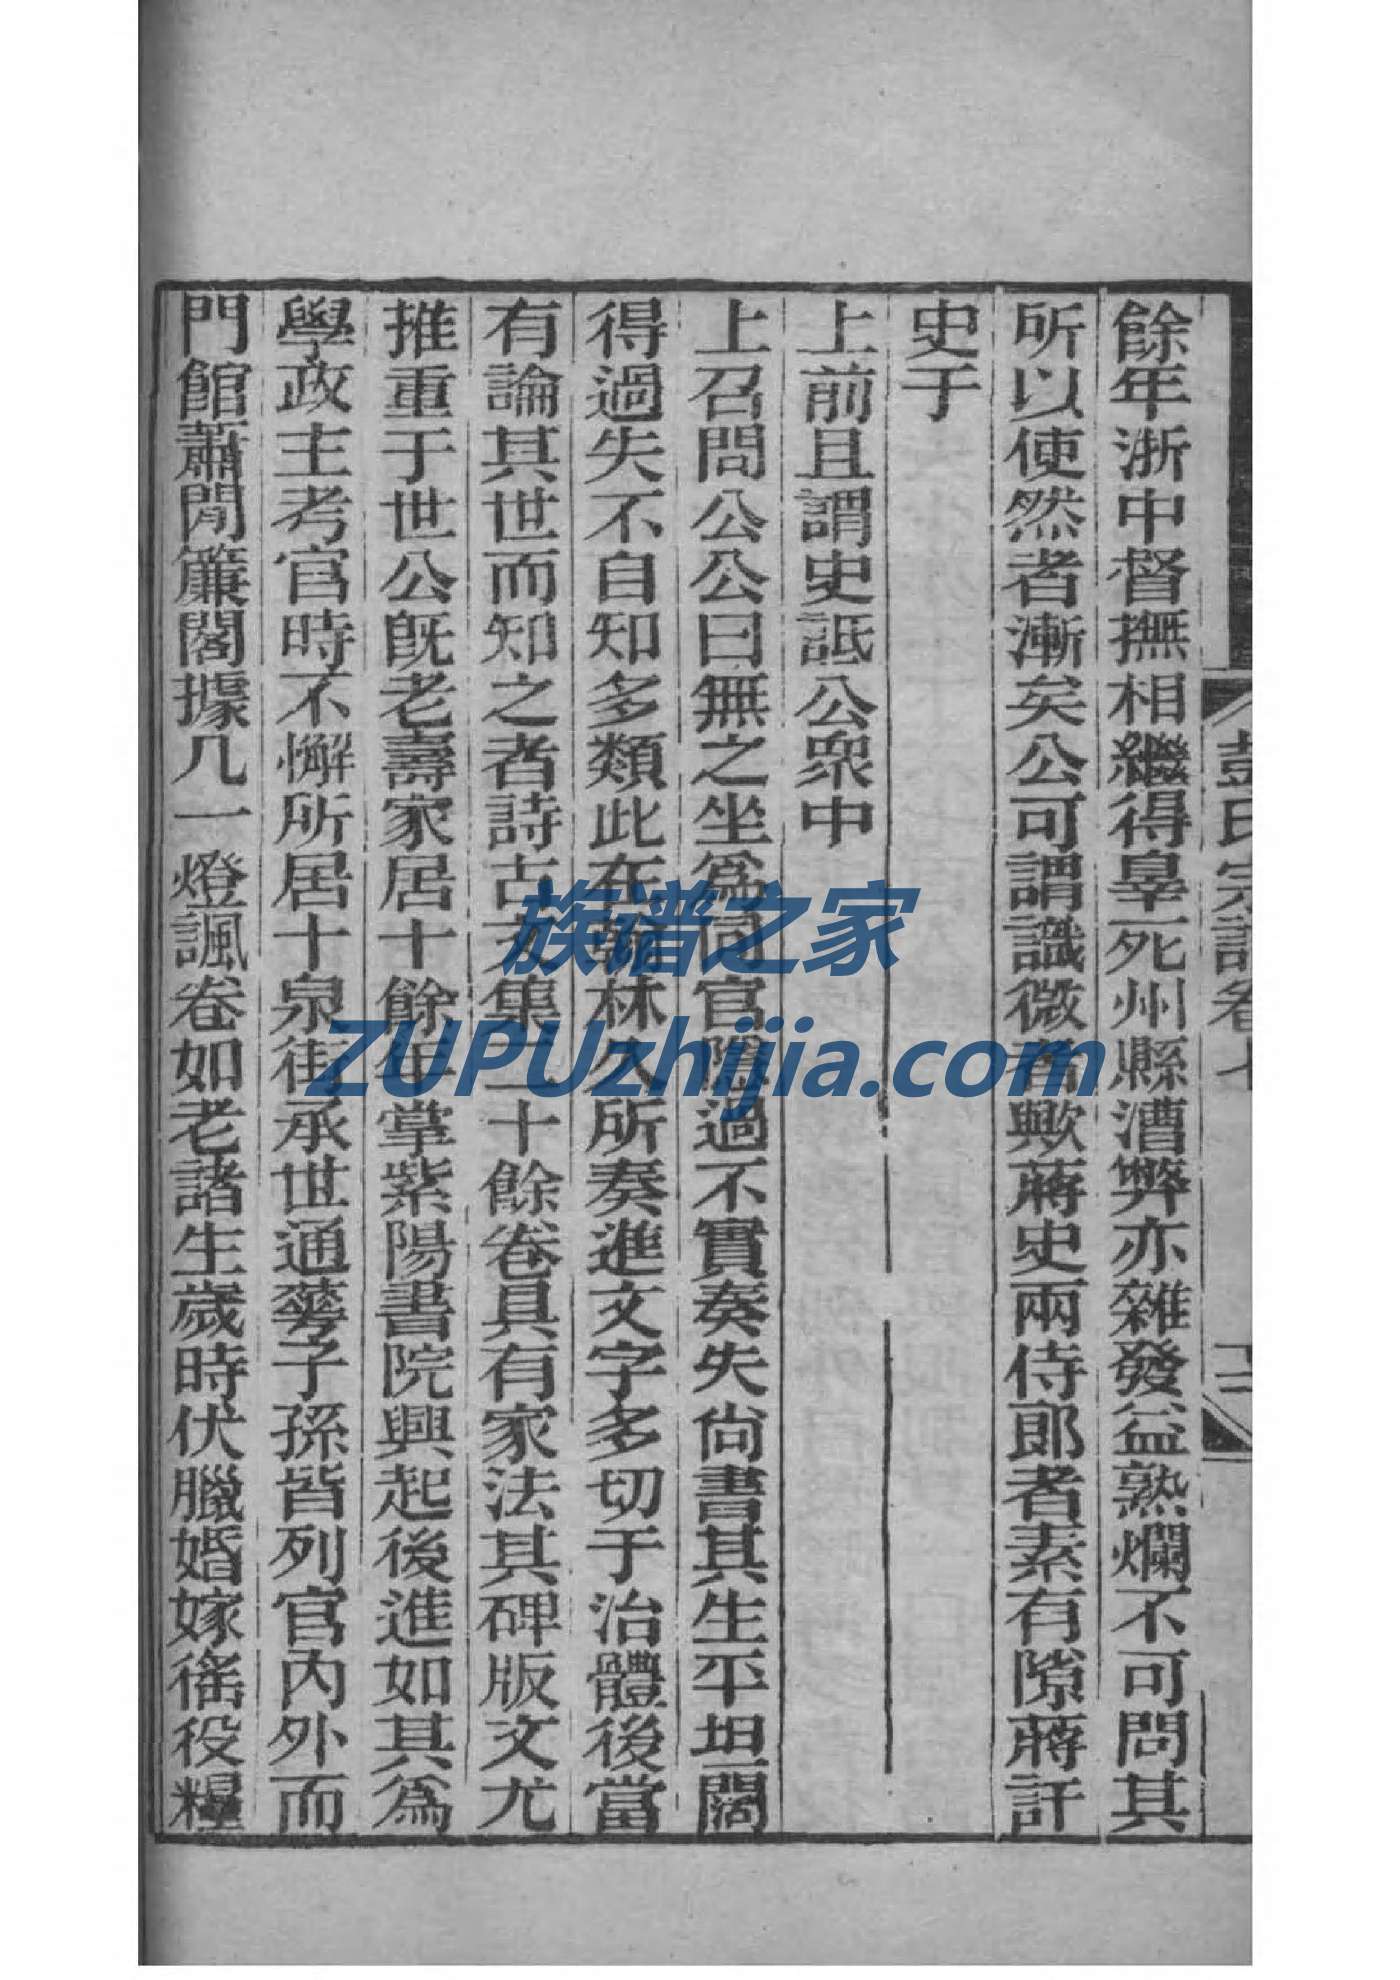 彭氏宗譜卷七
餘年浙中督撫相繼得辠死州縣漕弊亦雜發益熟爛不可問其
所以使然者漸矣公可謂識微者歟蔣史兩侍郎者素有隙蔣訐
史于
上前且謂史詆公衆中
上召問公公曰無之坐爲同官隱過不實奏失尙書其生平坦闊
得過失不自知多類此在翰林久所奏進文字多切于治體後當
有論其世而知之者詩古文集二十餘卷具有家法其碑版文尤
推重于世公既老壽家居十餘年掌紫陽書院興起後進如其爲
學政主考官時不懈所居十泉街承世通蕚子孫皆列官內外而
門館蕭閒簾閣據几一燈諷卷如老諸生歲時伏臘婚嫁徭役糧
族谱之家
ZUPUzhijia.com